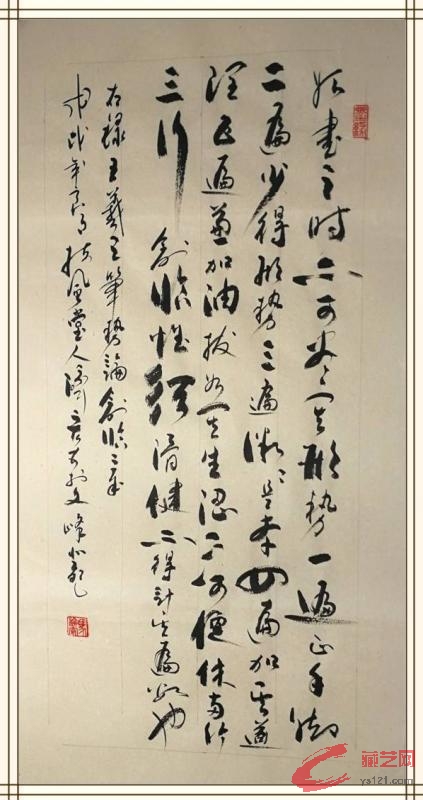 始書之時不可盡其形勢一遍正手腳
二遍少得形勢三遍微微似本四遍加其遒
潤五遍兼加抽拔如其生澀不可便休兩行
三行創臨惟須滑健不得計其遍數也
右錄王羲之筆勢論創臨章
戊戌年月扶風堂人
藏艺网
ys121.com